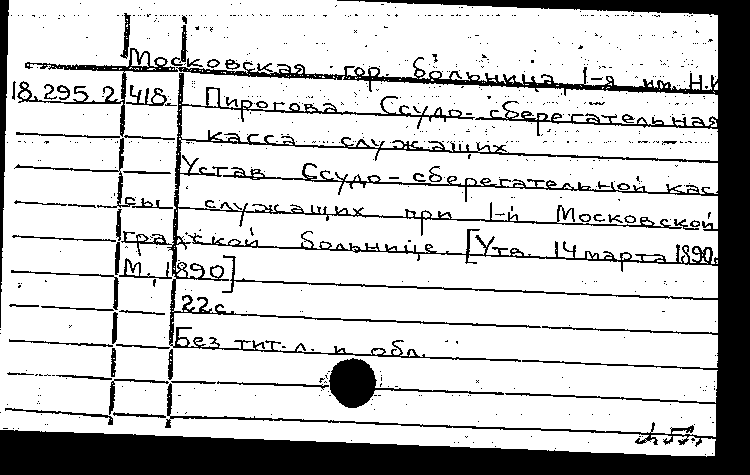 Московская гор. больница, 1-я им. Н.И
18.295.2.418. Пирогова. Ссудо-сберегательная
касса служащих
Устав Ссудо-сберегательной кас-
сы служащих при 1-й Московской
градской больнице. [Утв. 14 марта 1890.
М., 1890].
22 с.
Без тит. л. и обл.